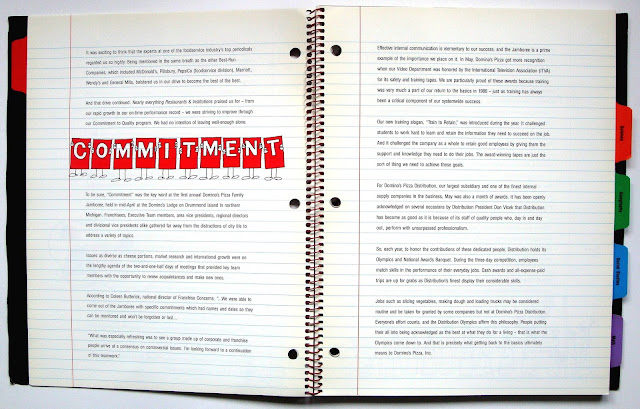 It was exciting to think that the experts at one of the foodservice industry's top periodicals
regarded us so highly. Being mentioned in the same breath as the other Best-Run
Companies, which included McDonald's, Pillsbury, PepsiCo (foodservice division), Marriott,
Wendy's and General Mills, bolstered us in our drive to become the best of the best.
And that drive continued. Nearly everything Restaurants & Institutions praised us for – from
our rapid growth to our on-time performance record – we were striving to improve through
our Commitment to Quality program. We had no intention of leaving well-enough alone.
COMMITMENT
To be sure, "Commitment" was the key word at the first annual Domino's Pizza Family
Jamboree, held in mid-April at the Domino's Lodge on Drummond Island in northern
Michigan. Franchisees, Executive Team members, area vice presidents, regional directors
and divisional vice presidents alike gathered far away from the distractions of city life to
address a variety of topics.
Issues as diverse as cheese portions, market research and international growth were on
the lengthy agenda of the two-and-one-half days of meetings that provided key team
members with the opportunity to renew acquaintances and make new ones.
According to Colleen Butterick, national director of Franchise Concerns, "...We were able to
come out of the Jamboree with specific commitments which had names and dates so they
can be monitored and won't be forgotten or lost...
"What was especially refreshing was to see a group made up of corporate and franchise
people arrive at a consensus on controversial issues. I'm looking forward to a continuation
of this teamwork."
Effective internal communication is elementary to our success, and the Jamboree is a prime
example of the importance we place on it. In May, Domino's Pizza got more recognition
when our Video Department was honored by the International Television Association (ITVA)
for its safety and training tapes. We are particularly proud of these awards because training
was very much a part of our return to the basics in 1986 – just as training has always
been a critical component of our systemwide success.
Our new training slogan, "Train to Retain," was introduced during the year. It challenged
students to work hard to learn and retain the information they need to succeed on the job.
And it challenged the company as a whole to retain good employees by giving them the
support and knowledge they need to do their jobs. The award-winning tapes are just the
sort of thing we need to achieve these goals.
For Domino's Pizza Distribution, our largest subsidiary and one of the finest internal
supply companies in the business, May was also a month of awards. It has been openly
acknowledged on several occasions by Distribution President Don Vlcek that Distribution
has become as good as it is because of its staff of quality people who, day in and day
out, perform with unsurpassed professionalism.
So, each year, to honor the contributions of these dedicated people, Distribution holds its
Olympics and National Awards Banquet. During the three-day competition, employees
match skills in the performance of their everyday jobs. Cash awards and all-expense-paid
trips are up for grabs as Distribution's finest display their considerable skills.
Jobs such as slicing vegetables, making dough and loading trucks may be considered
routine and be taken for granted by some companies but not at Domino's Pizza Distribution.
Everyone's effort counts, and the Distribution Olympics affirm this philosophy. People putting
their all into being acknowledged as the best at what they do for a living – that is what the
Olympics come down to. And that is precisely what getting back to the basics ultimately
means to Domino's Pizza, Inc.